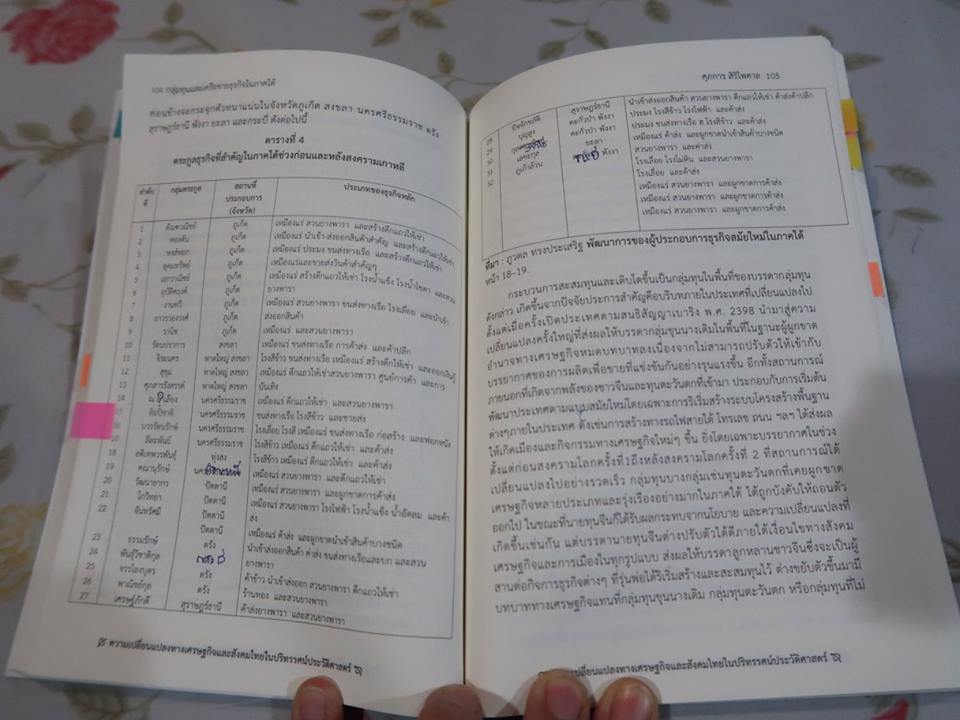 104 กลุ่มทุนและเครือข่ายธุรกิจในภาคใต้
ค่อนข้างจะกระจุกตัวหนาแน่นในจังหวัดภูเก็ต สงขลา นครศรีธรรมราช ตรัง
สุราษฎร์ธานี พังงา ยะลา และกระบี่ ดังต่อไปนี้
ตารางที่ 4
ตระกูลธุรกิจที่สำคัญในภาคใต้ช่วงก่อนและหลังสงครามเกาหลี
ลำดับที่ กลุ่มตระกูล สถานที่ประกอบการ (จังหวัด) ประเภทของธุรกิจหลัก
1 ตัณฑวณิชย์ ภูเก็ต เหมืองแร่ สวนยางพารา และสร้างตึกแถวให้เช่า
2 ทองตัน ภูเก็ต เหมืองแร่ นำเข้า-ส่งออกสินค้าสำคัญ และสร้างตึกแถวให้เช่า
3 หงส์หยก ภูเก็ต เหมืองแร่ ประมง ขนส่งทางเรือ และสร้างตึกแถวให้เช่า
4 อุดมทรัพย์ ภูเก็ต เหมืองแร่และขายส่งสินค้าสำคัญๆ
5 เอกวานิชย์ ภูเก็ต เหมืองแร่ สร้างตึกแถวให้เช่า โรงน้ำแข็ง โรงน้ำโซดา และสวนยางพารา
6 อุปัติศฤงค์ ภูเก็ต
7 งานทวี ภูเก็ต เหมืองแร่ สวนยางพารา ขนส่งทางเรือ โรงเลื่อย และนำเข้าส่งออกสินค้า
8 ถาวรว่องวงศ์ ภูเก็ต
9 วานิช ภูเก็ต เหมืองแร่ และสวนยางพารา
10 รัตนปราการ สงขลา เหมืองแร่ ขนส่งทางเรือ การค้าส่ง และค้าปลีก
11 จิระนคร หาดใหญ่ สงขลา
12 สุขุม หาดใหญ่ สงขลา
13 ศุภสารรังสรรค์ หาดใหญ่ สงขลา
14 ณ
นครศรีธรรมราช เหมืองแร่ ตึกแถวให้เช่า และสวนยางพารา
15 ลิมปิชาติ นครศรีธรรมราช ขนส่งทางเรือ โรงสีข้าว และขายส่ง
16 บวรรัตนรักษ์ นครศรีธรรมราช
17 ลีละพันธ์ นครศรีธรรมราช โรงสีข้าว เหมืองแร่ ตึกแถวให้เช่า และค้าส่ง
18 อดิเทพวรพันธุ์ ทุ่งสง โรงสีข้าว เหมืองแร่ ตึกแถวให้เช่า และค้าส่ง
19 คณานุรักษ์ เหมืองแร่ สวนยางพารา และตึกแถวให้เช่า
20 วัฒนายากร ปัตตานี เหมืองแร่ สวนยางพารา และผูกขาดการค้าส่ง
21 โกวิทยา ปัตตานี
22 จันทรัศมี ปัตตานี เหมืองแร่ สวนยางพารา โรงไฟฟ้า โรงน้ำแข็ง น้ำอัดลม และค้าส่ง
ปัตตานี เหมืองแร่ ค้าส่ง และผูกขาดนำเข้าสินค้าบางชนิด
23 ธรรมรักษ์ ตรัง
24 นำเข้าส่งออกสินค้า ค่าส่ง ขนส่งทางเรือและบก และสวนยางพารา
25 จรรโลงบุตร ตรัง ค้าข้าว นำเข้าส่งออก สวนยางพารา ตึกแถวให้เช่า
26 พาณิชย์กุล ตรัง ร้านทอง และสวนยางพารา
27 เศรษฐ์ภักดี สุราษฎร์ธานี ค้าส่งยางพารา และสวนยางพารา
ความเปลี่ยนแปลงทางเศรษฐกิจและสังคมไทยในปริทรรศน์ประวัติศาสตร์
ศุภการ สิริไพศาล 105
28 สุราษฎร์ธานี นำเข้าส่งออกสินค้า สวนยางพารา ตึกแถวให้เช่า ค้าส่งค้าปลีก
29 บุญสูง ตะกั่วป่า พังงา ประมง โรงสีข้าว โรงไฟฟ้า และค้าส่ง
30 ตะกั่วป่า พังงา ประมง ขนส่งทางเรือ โรงสีข้าว และค้าส่ง
31 ยะลา เหมืองแร่ ค้าส่ง และผูกขาดนำเข้าสินค้าบางชนิด
32 ภูเก้าล้วน พังงา สวนยางพารา และค้าส่ง
โรงเลื่อย โรงโม่หิน และสวนยางพารา
โรงเลื่อย และค้าส่ง
เหมืองแร่ สวนยางพารา และผูกขาดการค้าส่ง
เหมืองแร่ สวนยางพารา และผูกขาดการค้าส่ง
เหมืองแร่ สวนยางพารา และผูกขาดการค้าส่ง
ที่มา : ภูวดล ทรงประเสริฐ พัฒนาการของผู้ประกอบการธุรกิจสมัยใหม่ในภาคใต้
หน้า 18-19.
กระบวนการสะสมทุนและเติบโตขึ้นเป็นกลุ่มทุนในพื้นที่ของบรรดากลุ่มทุน
ดังกล่าว เกิดขึ้นจากปัจจัยประการสำคัญคือบริบทภายในประเทศที่เปลี่ยนแปลงไป
ตั้งแต่เมื่อครั้งเปิดประเทศตามสนธิสัญญาเบาริง พ.ศ. 2398 นำมาสู่ความ
เปลี่ยนแปลงครั้งใหญ่ที่ส่งผลให้บรรดากลุ่มขุนนางเดิมในพื้นที่ในฐานะผู้ผูกขาด
อำนาจทางเศรษฐกิจหมดบทบาทลงเนื่องจากไม่สามารถปรับตัวให้เข้ากับ
บรรยากาศของการผลิตเพื่อขายที่แข่งขันกันอย่างรุนแรงขึ้น อีกทั้งสถานการณ์
ภายนอกที่เกิดจากพลังของชาวจีนและทุนตะวันตกที่เข้ามา ประกอบกับการเริ่มต้น
พัฒนาประเทศตามแบบสมัยใหม่โดยเฉพาะการริเริ่มสร้างระบบโครงสร้างพื้นฐาน
ต่างๆภายในประเทศ ดังเช่นการสร้างทางรถไฟสายใต้ โทรเลข ถนน ฯลฯ ได้ส่งผล
ให้เกิดเมืองและกิจกรรมทางเศรษฐกิจใหม่ๆ ขึ้น ยิ่งโดยเฉพาะบรรยากาศในช่วง
ตั้งแต่ก่อนสงครามโลกครั้งที่1ถึงหลังสงครามโลกครั้งที่ 2 ที่สถานการณ์ได้
เปลี่ยนแปลงไปอย่างรวดเร็ว กลุ่มทุนบางกลุ่มเช่นทุนตะวันตกที่เคยผูกขาด
เศรษฐกิจหลายประเภทและรุ่งเรืองอย่างมากในภาคใต้ ได้ถูกบังคับให้ถอนตัว
ออกไป ในขณะที่นายทุนจีนก็ได้รับผลกระทบจากนโยบาย และความเปลี่ยนแปลงที่
เกิดขึ้นเช่นกัน แต่บรรดานายทุนจีนต่างปรับตัวได้ดีภายใต้เงื่อนไขทางสังคม
เศรษฐกิจและการเมืองในทุกรูปแบบ ส่งผลให้บรรดาลูกหลานชาวจีนซึ่งจะเป็นผู้
สานต่อกิจการธุรกิจต่างๆ ที่รุ่นพ่อได้ริเริ่มสร้างและสะสมทุนไว้ ต่างขยับตัวขึ้นมามี
บทบาททางเศรษฐกิจแทนที่กลุ่มทุนขุนนางเดิม กลุ่มทุนตะวันตก หรือกลุ่มทุนที่ไม่
เปลี่ยนแปลงทางเศรษฐกิจและสังคมไทยในปริทรรศน์ประวัติศาสตร์